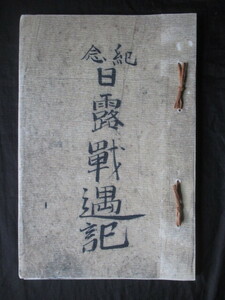 紀念
日露戰遇記